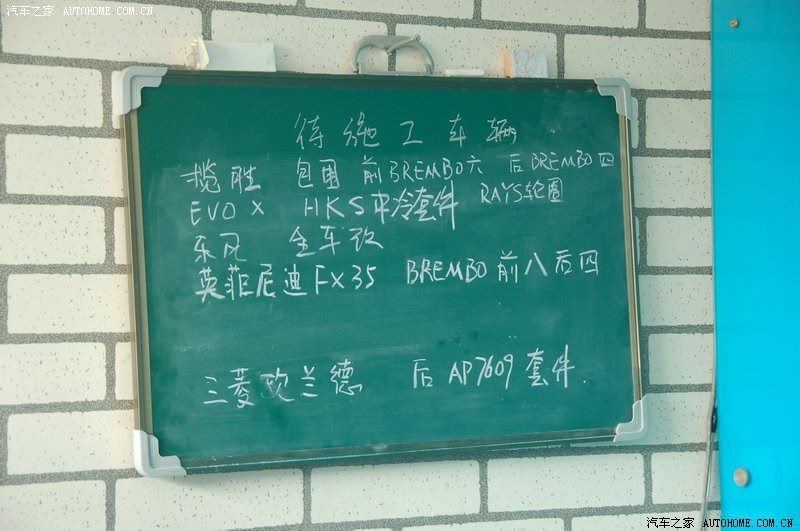 汽车之家 AUTOHOME.COM.CN
待施工车辆
揽胜 包围 前BREMBO六 后BREMBO四
EVO X HKS中冷套件 RAYS轮圈
东风 全车改
英菲尼迪FX35 BREMBO前八后四
三菱欧兰德 后AP7609套件
汽车之家 AUTOHOME.COM.CN